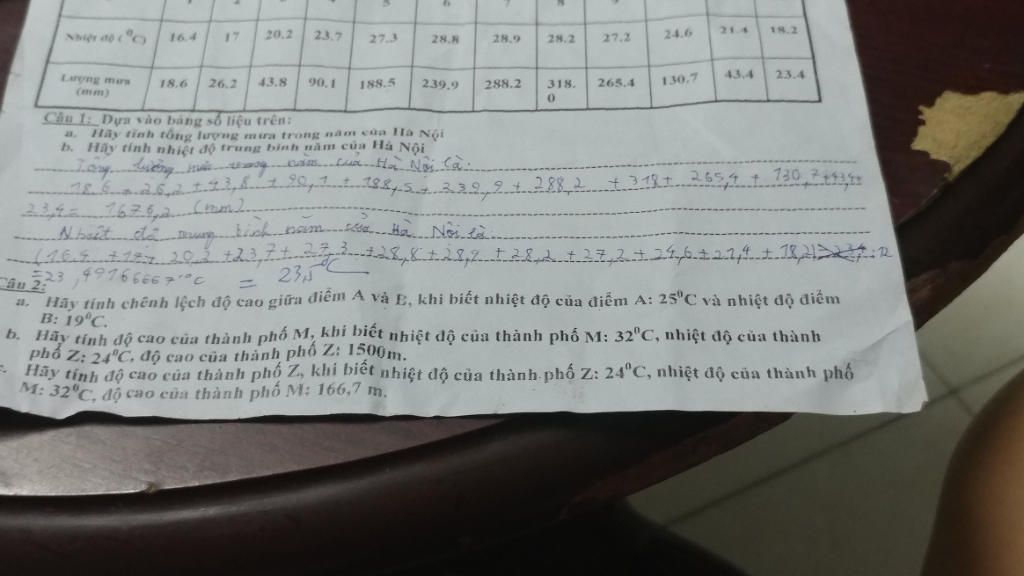 5 6 7 8
Nhiệt độ (⁰C) 16.4 17 20.2 23.7 27.3 28.8 28.9 28.2 27.2 24.6 21.4 18.2
Lượng mưa (mm) 18.6 26.2 43.8 90.1 188.5 239.9 288.2 318.0 265.4 130.7 43.4 23.4
Câu 1: Dựa vào bảng số liệu trên:
a. Hãy tính tổng lượng mưa trong năm của Hà Nội
b. Hãy tính nhiệt độ trung bình năm của Hà Nội
Tổng lượng mưa trong năm của Hà Nội là:
18,6 + 26,2 + 43,8 + 90,1 + 188,5 + 239,9 + 288,2 + 318 + 265,4 + 130,7 + 43,4 +
23,4 = 1676,2 (mm)
Nhiệt độ trung bình năm của Hà Nội là:
(16,4 + 17 + 20,2 + 23,7 + 27,3 + 28,8 + 28,9 + 28,2 + 27,2 + 24,6 + 21,4 + 18,2) : 12
= 23,49166667 ⁰C = 23,5⁰C
Câu 2:
a. Hãy tính chênh lệch độ cao giữa điểm A và B, khi biết nhiệt độ của điểm A: 25⁰C và nhiệt độ điểm
B: 19⁰C.
b. Hãy tính độ cao của thành phố M, khi biết nhiệt độ của thành phố M: 32⁰C, nhiệt độ của thành
phố Z: 24⁰C, độ cao của thành phố Z: 1500m.
Hãy tính độ cao của thành phố Z, khi biết nhiệt độ của thành phố Z: 24⁰C, nhiệt độ của thành phố
M: 32⁰C, độ cao của thành phố M: 166,7 m.